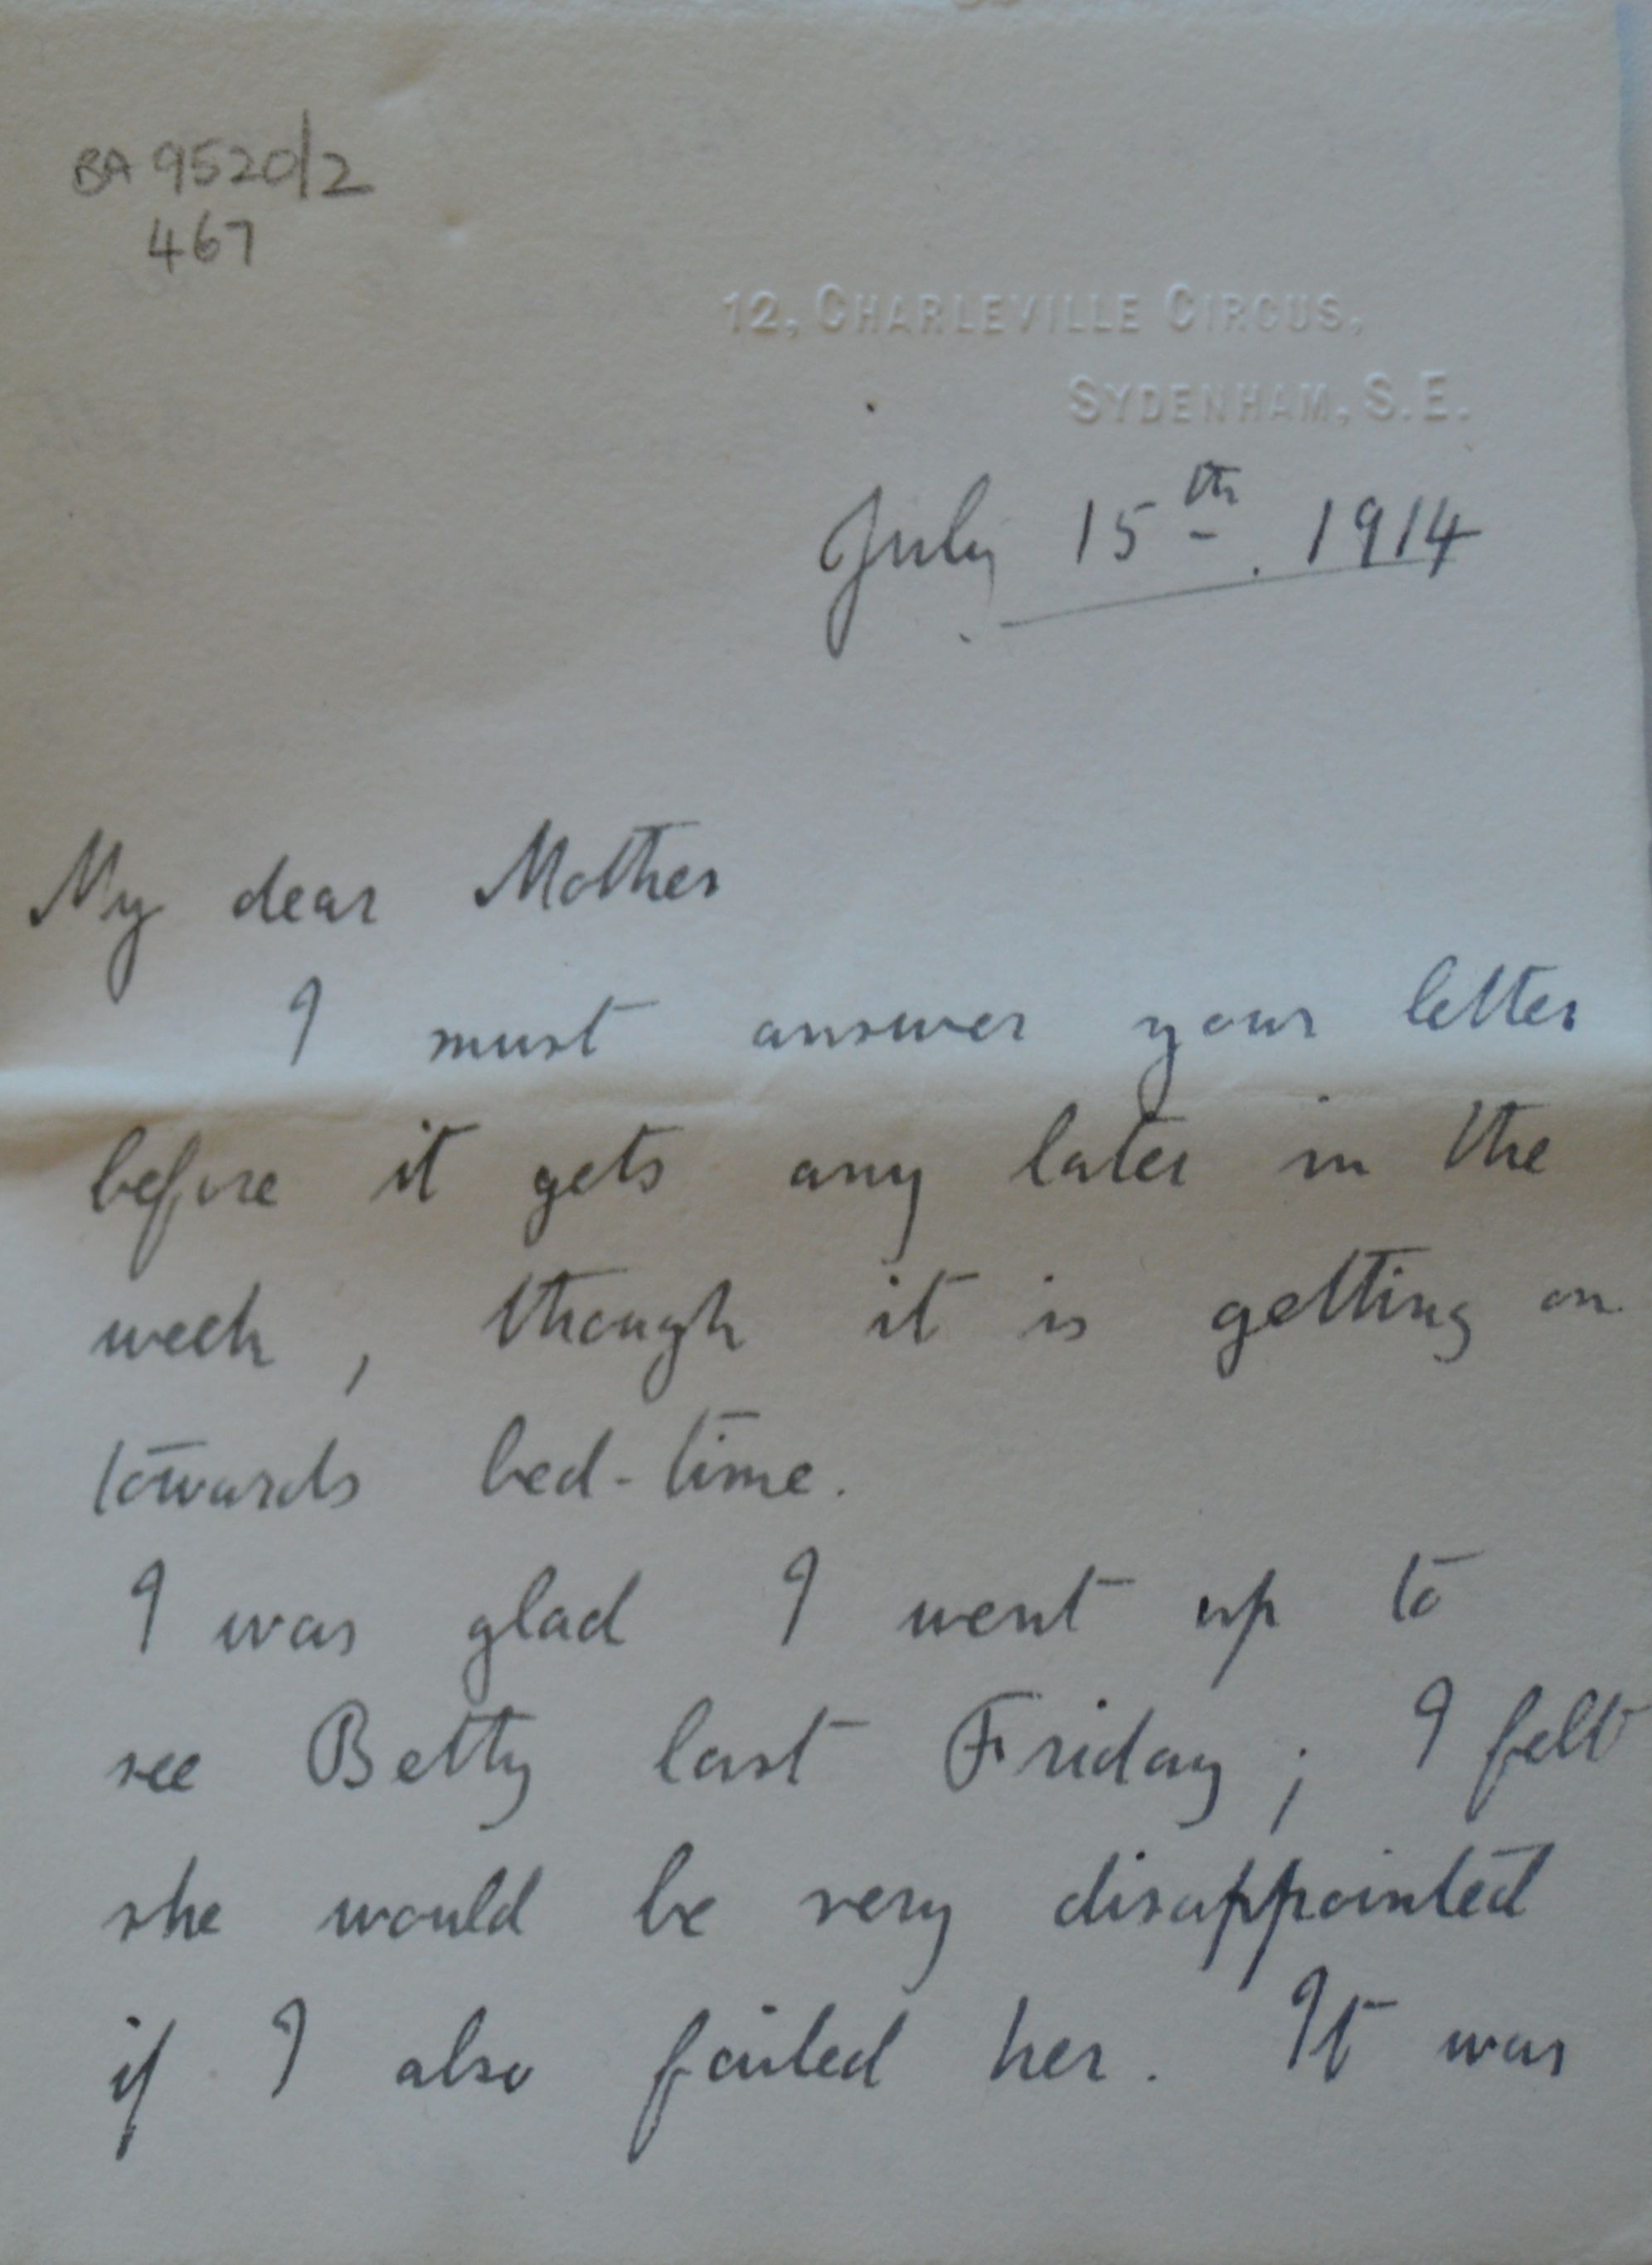 BA 9520/2
467
12, CHARLEVILLE CIRCUS,
SYDENHAM, S.E.
July 15th. 1914
My dear Mother
I must answer your letter
before it gets any later in the
week, though it is getting on
towards bed-time.
I was glad I went up to
see Betty last Friday; I felt
she would be very disappointed
if I also failed her. It was